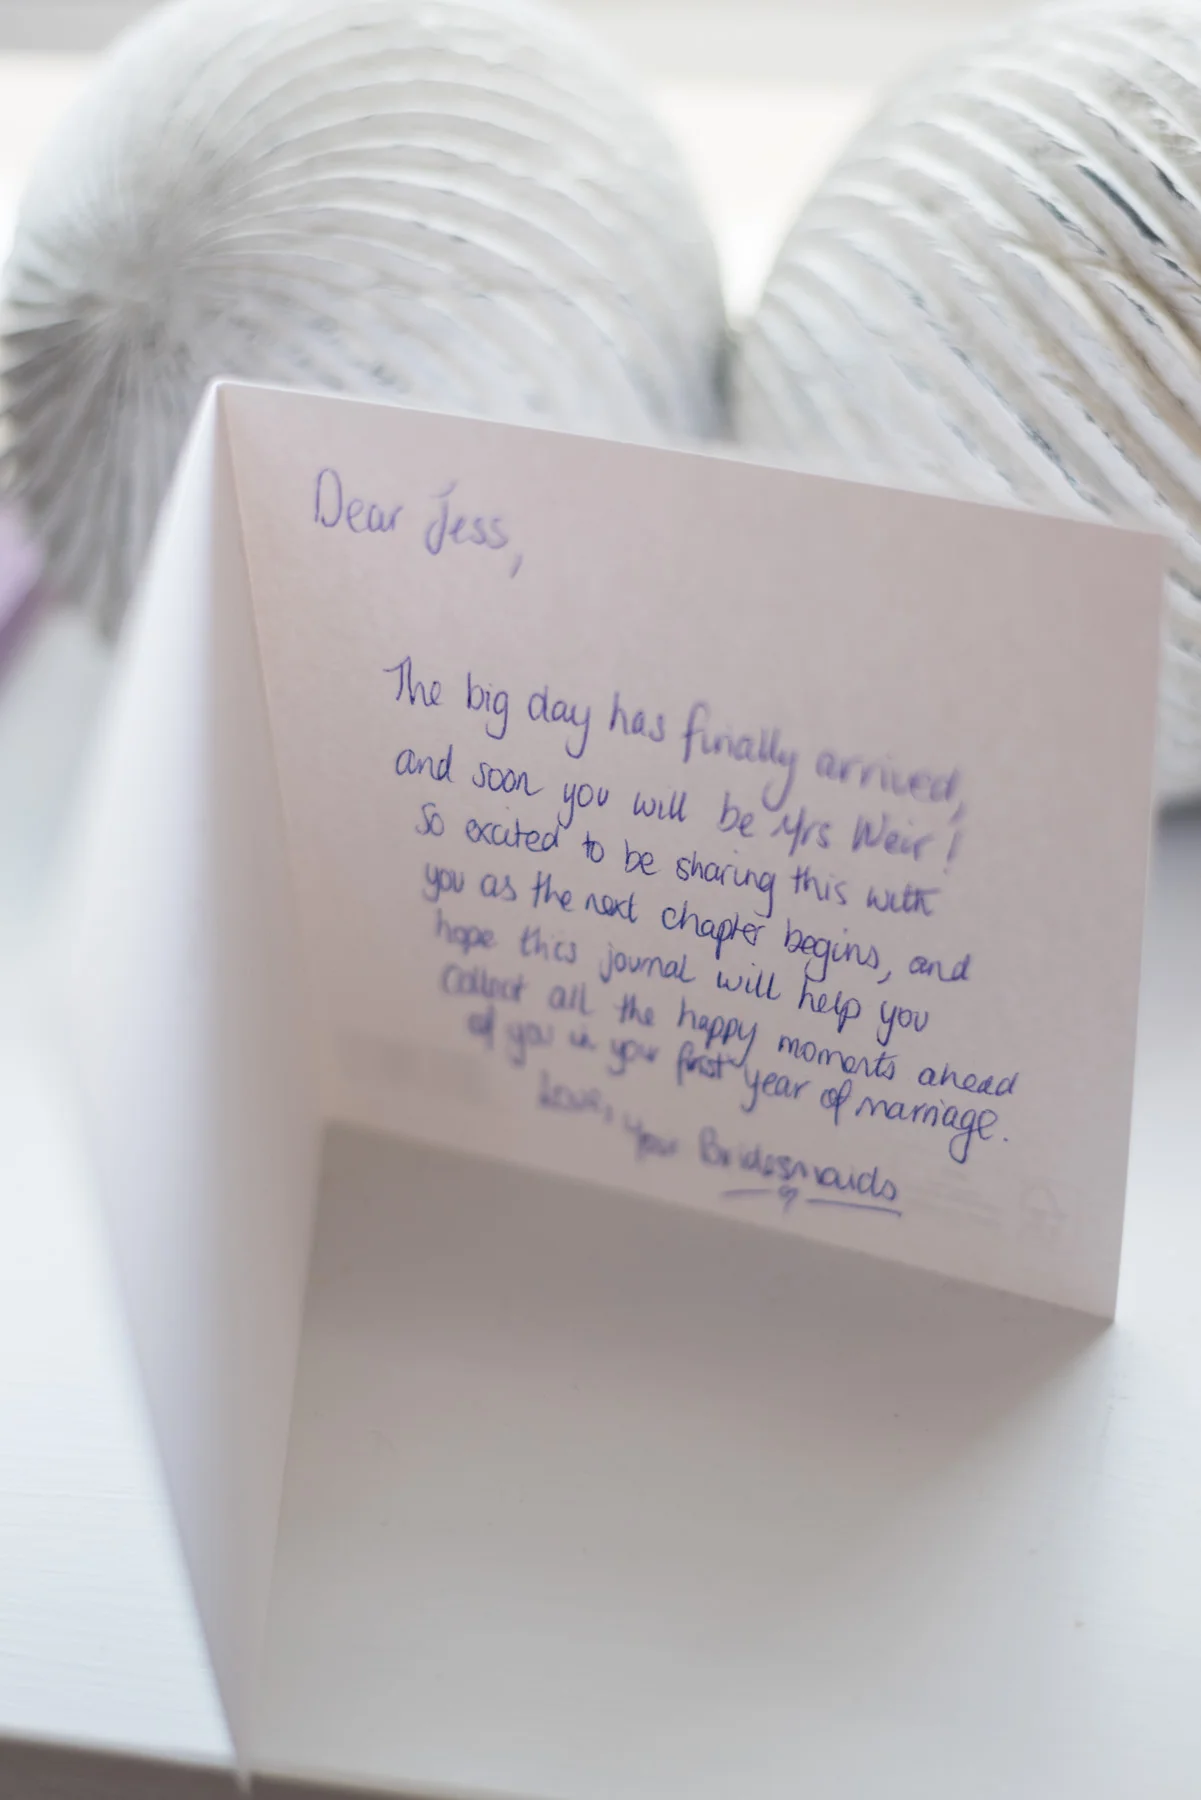 Dear Jess,
The big day has finally arrived,
and soon you will be Mrs Weir!
So excited to be sharing this with
you as the next chapter begins, and
hope this journal will help you
collect all the happy moments ahead
of you in your first year of marriage.
Love, Your Bridesmaids